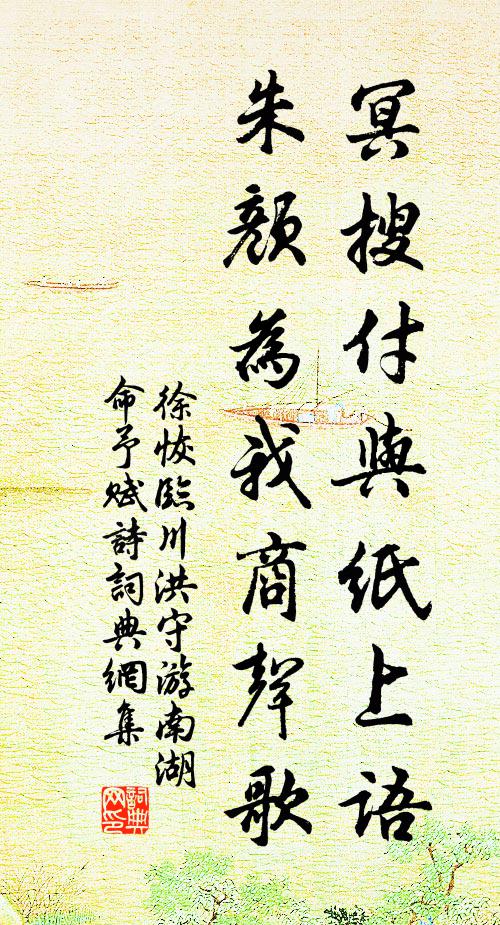 冥搜付與紙上語
朱顏為我商聲歌
徐恢臨川洪守游南湖
命予賦詩詞典網集
詞典網印